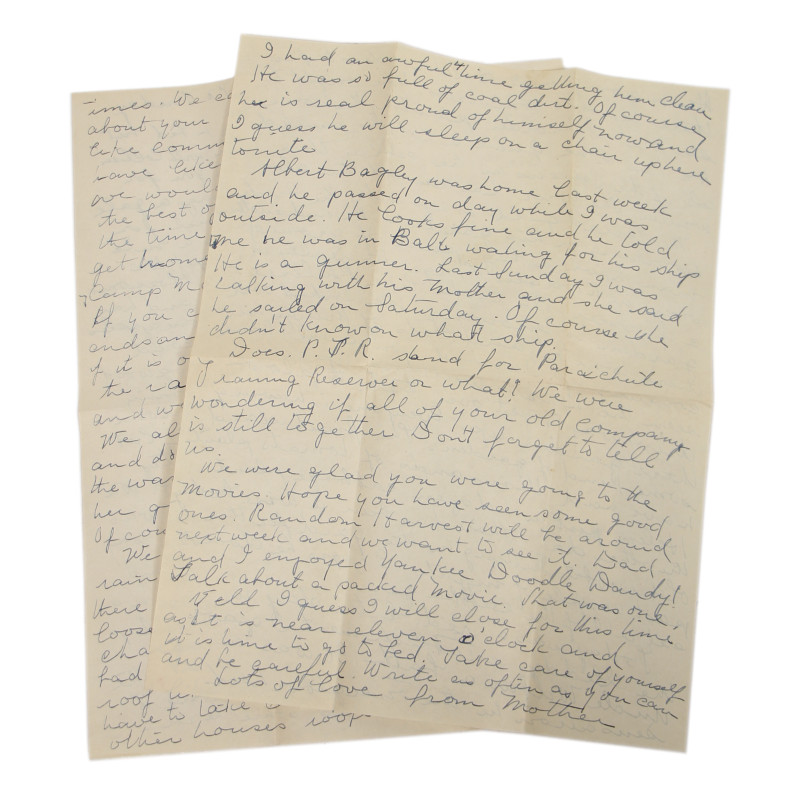 I had an awful time getting him clean
He was so full of coal dirt. Of course,
he is real proud of himself now and
I guess he will sleep on a chair up here
tonite
Albert Bagley was home last week
and he passed on day while I was
outside. He looks fine and he told
me he was in Balto waiting for his ship
He is a gunner. Last Sunday I was
talking with his Mother and she said
he sailed on Saturday. Of course she
didn't know on what ship.
Does. P. T. R. stand for Parachute
Training Reserve or what? We were
wondering if all of your old company
is still together Don't forget to tell
us.
We were glad you were going to the
Movies. Hope you have seen some good
ones. Random Harvest will be around
next week and we want to see it. Dad
and I enjoyed Yankee Doodle Dandy!
Talk about a packed Movie. That was one.
Well I guess I will close for this time
as it is near eleven o'clock and
it is time to go to bed. Take care of yourself
and be careful. Write as often as you can
Lots of love from Mother
imes. We
about your
like
have like
we would
the best of
the time
get home
Camp
If you
if it is
the
and
We
and
the
her
Of
We
rain
there
loose
had
roof
have to take
other houses roof